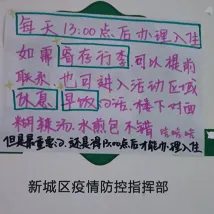 每天13:00点后办理入住
如需寄存行李,可以提前
联系,也可进入活动区域
休息,早饭的话,楼下对面
糊辣汤,水煎包不错 哈哈哈
但是最重要的,还是得13:00点后才能办理入住
新城区疫情防控指挥部